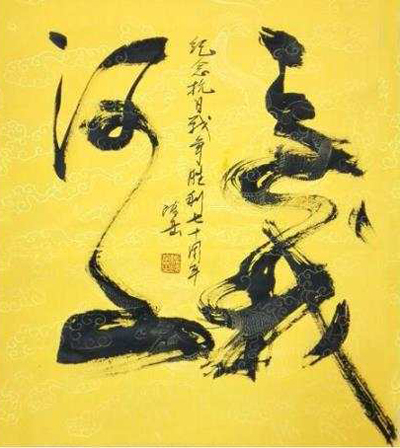 还我
河山
纪念抗日战争胜利七十周年